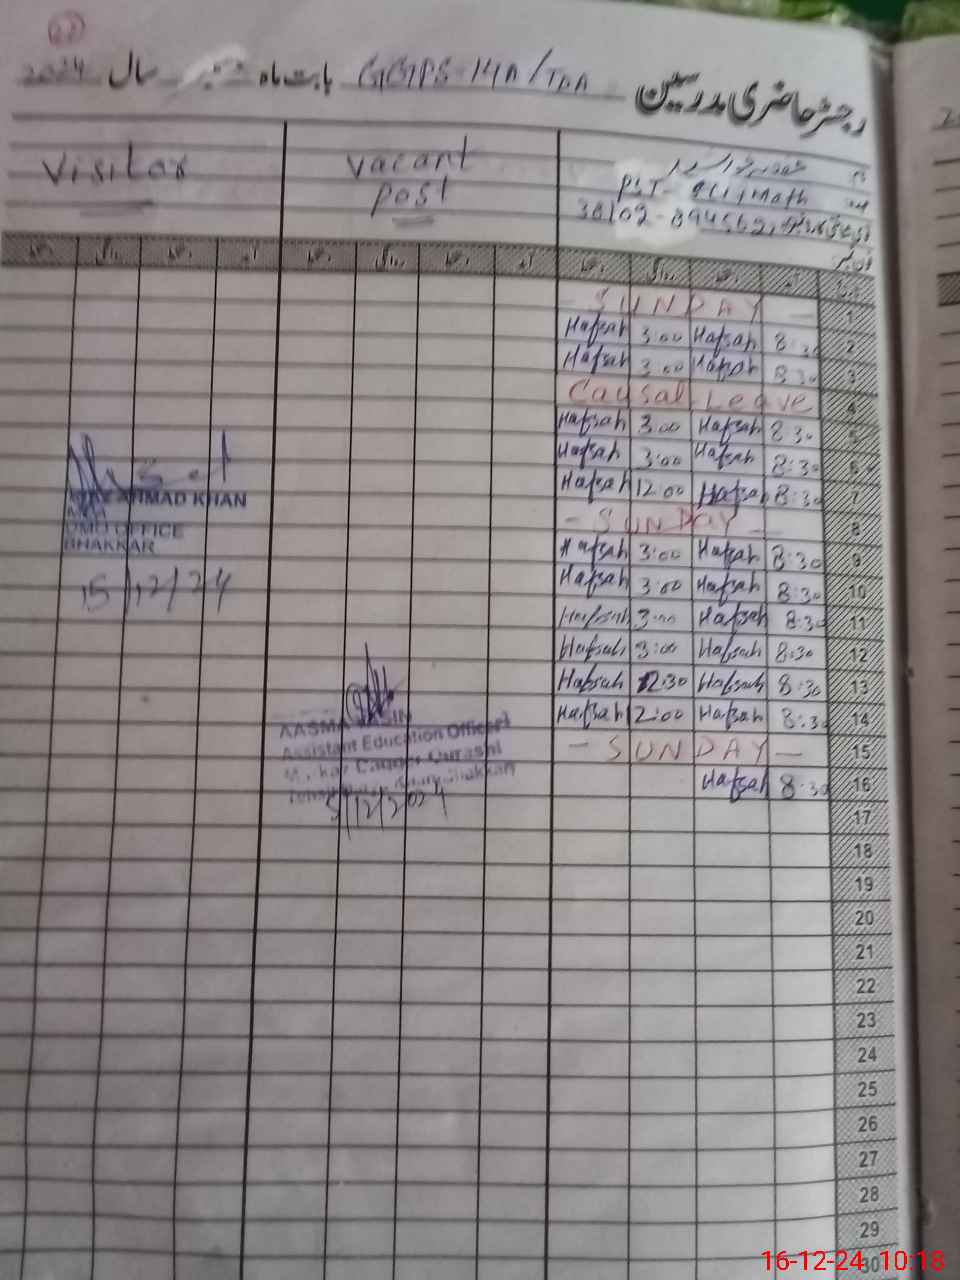 رجسٹر حاضری مدرسین
بابت ماہ GGPS-14A/TDA سال 2024
Visitor
vacant
post
PST-
Math
38102-
SUNDAY
1
Hafsah 3:00 Hafsah 8:30 2
Hafsah 3:00 Hafsah 8:30 3
Causal Leave 4
Hafsah 3:00 Hafsah 8:30 5
Hafsah 3:00 Hafsah 8:30 6
Hafsah 12:00 Hafsah 8:30 7
- SUNDAY - 8
Hafsah 3:00 Hafsah 8:30 9
Hafsah 3:00 Hafsah 8:30 10
Hafsah 3:00 Hafsah 8:30 11
Hafsah 3:00 Hafsah 8:30 12
Hafsah 12:30 Hafsah 8:30 13
Hafsah 2:00 Hafsah 8:30 14
- SUNDAY - 15
Hafsah 8:30 16
17
18
19
20
21
22
23
24
25
26
27
28
29
30
AHMAD KHAN
OFFICE
BHAKKAR
15/12/24
AASMA
Assistant Education Officer
Qurashi
5/12/2024
16-12-24 10:18